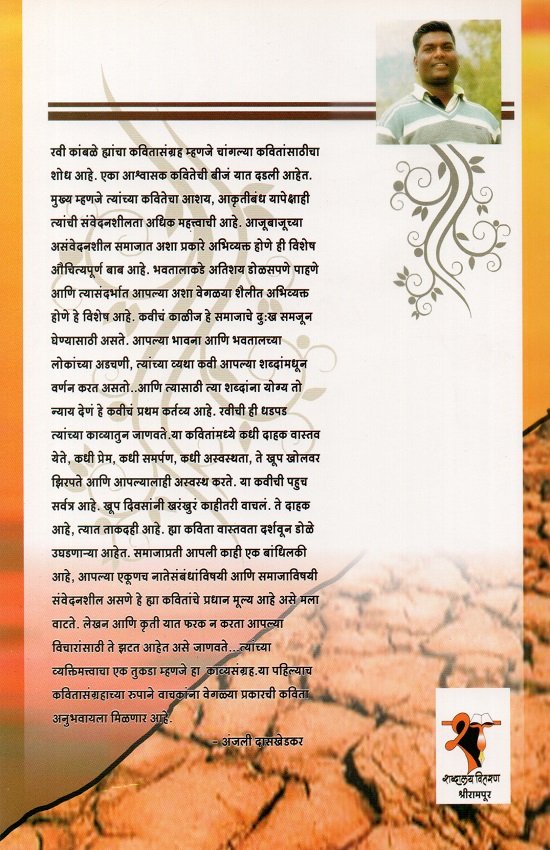 रवी कांबळे ह्यांचा कवितासंग्रह म्हणजे चांगल्या कवितांसाठीचा
शोध आहे. एका आश्वासक कवितेची बीजं यात दडली आहेत.
मुख्य म्हणजे त्यांच्या कवितेचा आशय, आकृतीबंध यापेक्षाही
त्यांची संवेदनशीलता अधिक महत्वाची आहे. आजूबाजूच्या
असंवेदनशील समाजात अशा प्रकारे अभिव्यक्त होणे ही विशेष
औचित्यपूर्ण बाब आहे. भवतालाकडे अतिशय डोळसपणे पाहणे
आणि त्यासंदर्भात आपल्या अशा वेगळया शैलीत अभिव्यक्त
होणे हे विशेष आहे. कवीचं काळीज हे समाजाचे दु:ख समजून
घेण्यासाठी असते. आपल्या भावना आणि भवतालच्या
लोकांच्या अडचणी, त्यांच्या व्यथा कवी आपल्या शब्दांमधून
वर्णन करत असतो..आणि त्यासाठी त्या शब्दांना योग्य तो
न्याय देणं हे कवीचं प्रथम कर्तव्य आहे. रवीची ही धडपड
त्यांच्या काव्यातुन जाणवते.या कवितांमध्ये कधी दाहक वास्तव
येते, कधी प्रेम, कधी समर्पण, कधी अस्वस्थता, ते खूप खोलवर
झिरपते आणि आपल्यालाही अस्वस्थ करते. या कवीची पहुच
सर्वत्र आहे. खूप दिवसांनी खरंखुरं काहीतरी वाचलं. ते दाहक
आहे, त्यात ताकदही आहे. ह्या कविता वास्तवता दर्शवून डोळे
उघडणाऱ्या आहेत. समाजाप्रती आपली काही एक बांधिलकी
आहे, आपल्या एकूणच नातेसंबंधांविषयी आणि समाजाविषयी
संवेदनशील असणे हे ह्या कवितांचे प्रधान मूल्य आहे असे मला
वाटते. लेखन आणि कृती यात फरक न करता आपल्या
विचारांसाठी ते झटत आहेत असे जाणवते...त्यांच्या
व्यक्तिमत्त्वाचा एक तुकडा म्हणजे हा काव्यसंग्रह.या पहिल्याच
कवितासंग्रहाच्या रुपाने वाचकांना वेगळ्या प्रकारची कविता
अनुभवायला मिळणार आहे.
- अंजली दासखेडकर
शब्दालय वितरण
श्रीरामपूर